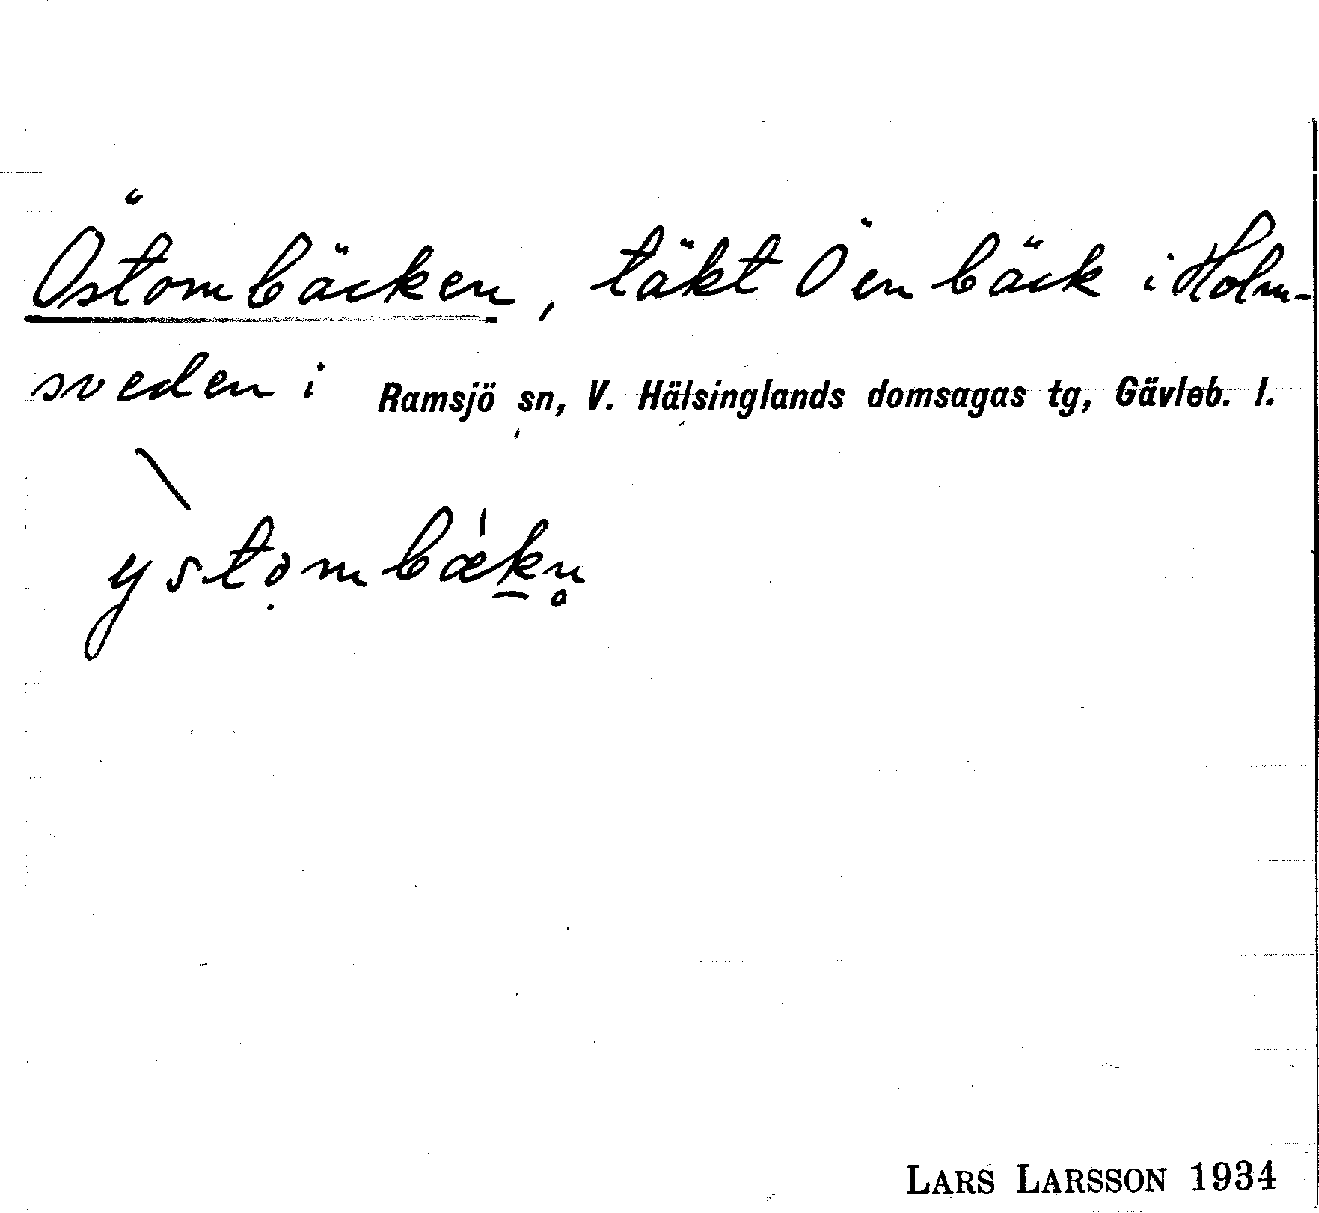 Östombäcken, täkt Ö en bäck i Holm-
sveden i Ramsjö sn, V. Hälsinglands domsagas tg, Gävleb. l.
ỳstọmbǽk̲n̥
LARS LARSSON 1934